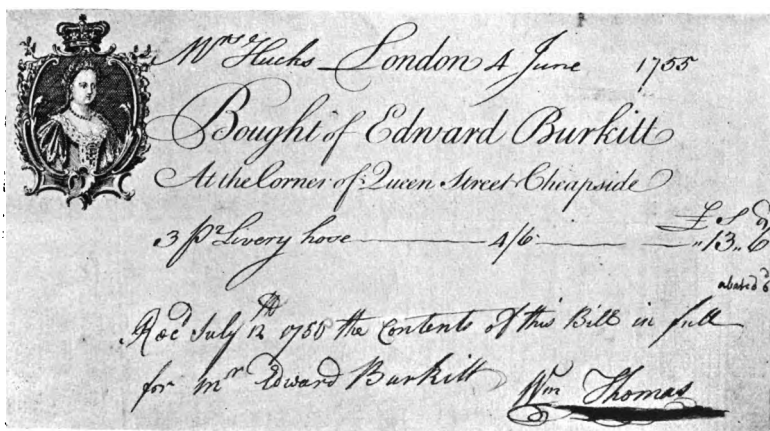 Mrs Hucks London 4 June 1755
Bought of Edward Burkitt
At the Corner of Queen Street Cheapside
£ S d
3 pr Livery hose 4/6 " 13 " 6
abated 6d
Recd July 12th 1755 the Contents of this Bill in full
for Mr Edward Burkitt Wm Thomas